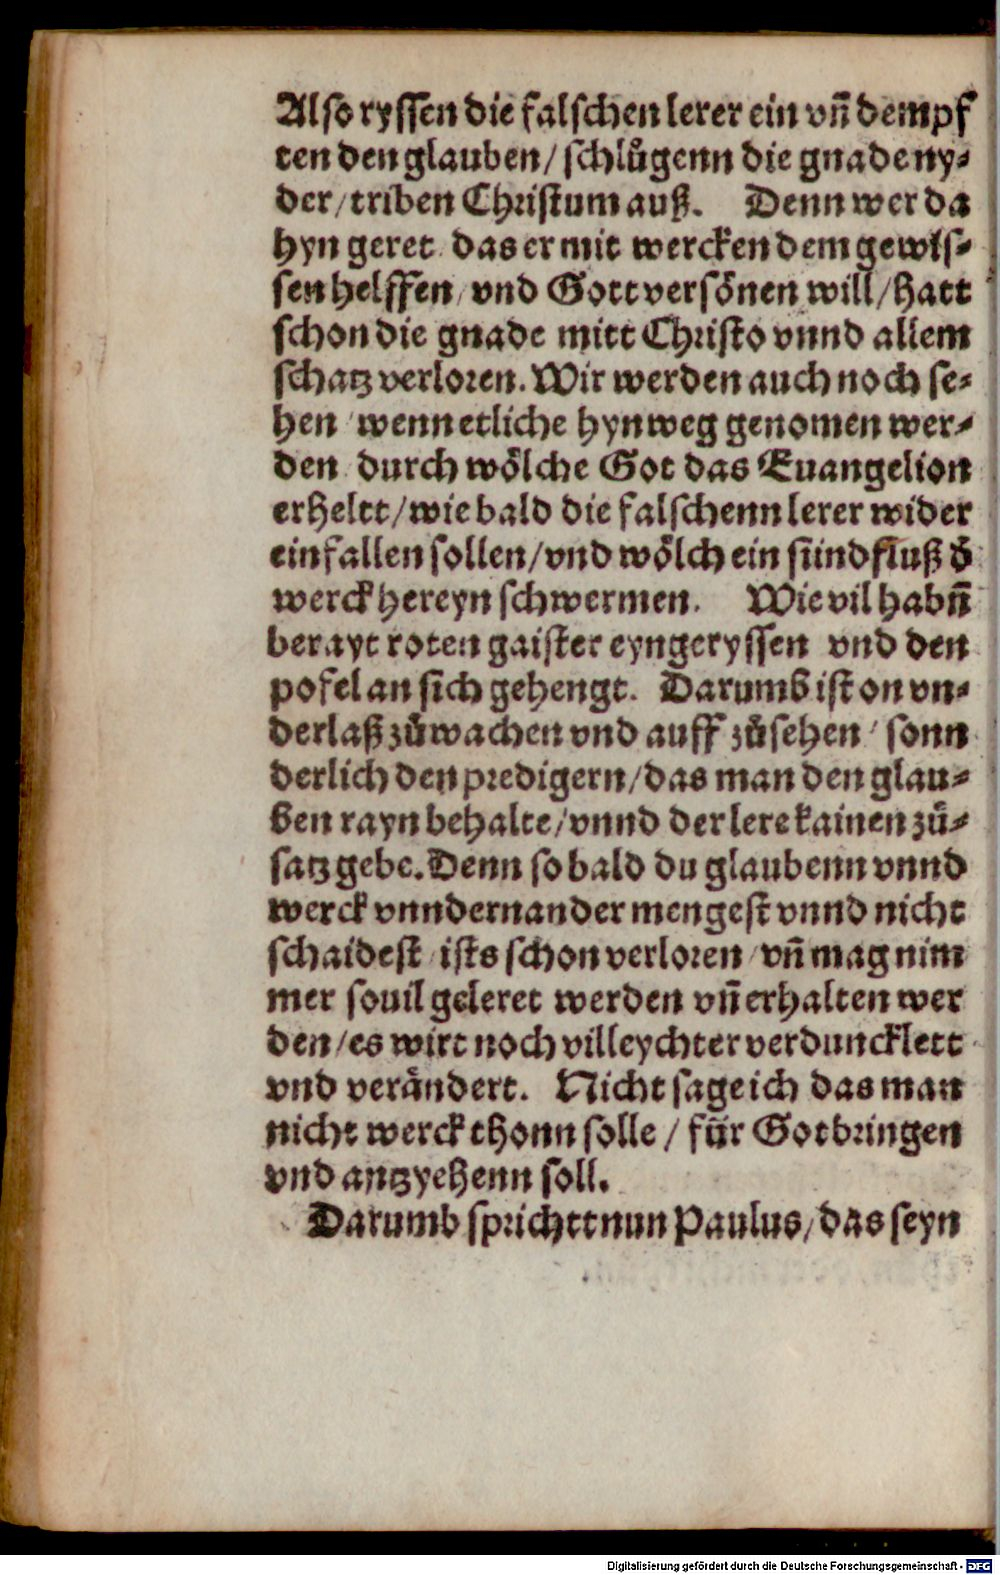 Also ryssen die falschen lerer ein vn̄ dempf
ten den glauben/ schlůgenn die gnade ny⸗
der/ triben Christum auß. Denn wer da
hyn geret das er mit wercken dem gewis⸗
sen helffen/ vnd Gott versönen will/ hatt
schon die gnade mitt Christo vnnd allem
schatz verloren. Wir werden auch noch se⸗
hen/ wenn etliche hynweg genomen wer⸗
den durch wölche Got das Euangelion
erheltt/ wie bald die falschenn lerer wider
einfallen sollen/ vnd wölch ein sündfluß d̕
werck hereyn schwermen. Wie vil habn̄
berayt roten gaister eyngeryssen vnd den
pofel an sich gehengt. Darumb ist on vn⸗
derlaß zůwachen vnd auff zůsehen/ sonn
derlich den predigern/ das man den glau⸗
ben rayn behalte/ vnnd der lere kainen zů⸗
satz gebe. Denn so bald du glaubenn vnnd
werck vnndernander mengest vnnd nicht
schaidest/ ists schon verloren/ vn̄ mag nim
mer souil geleret werden vn̄ erhalten wer
den/ es wirt noch villeychter verduncklett
vnd verändert. Nicht sage ich das man
nicht werck thonn solle/ für Got bringen
vnd antzyehenn soll.
Darumb sprichtt nun Paulus/ das seyn
Digitalisierung gefördert durch die Deutsche Forschungsgemeinschaft - DFG